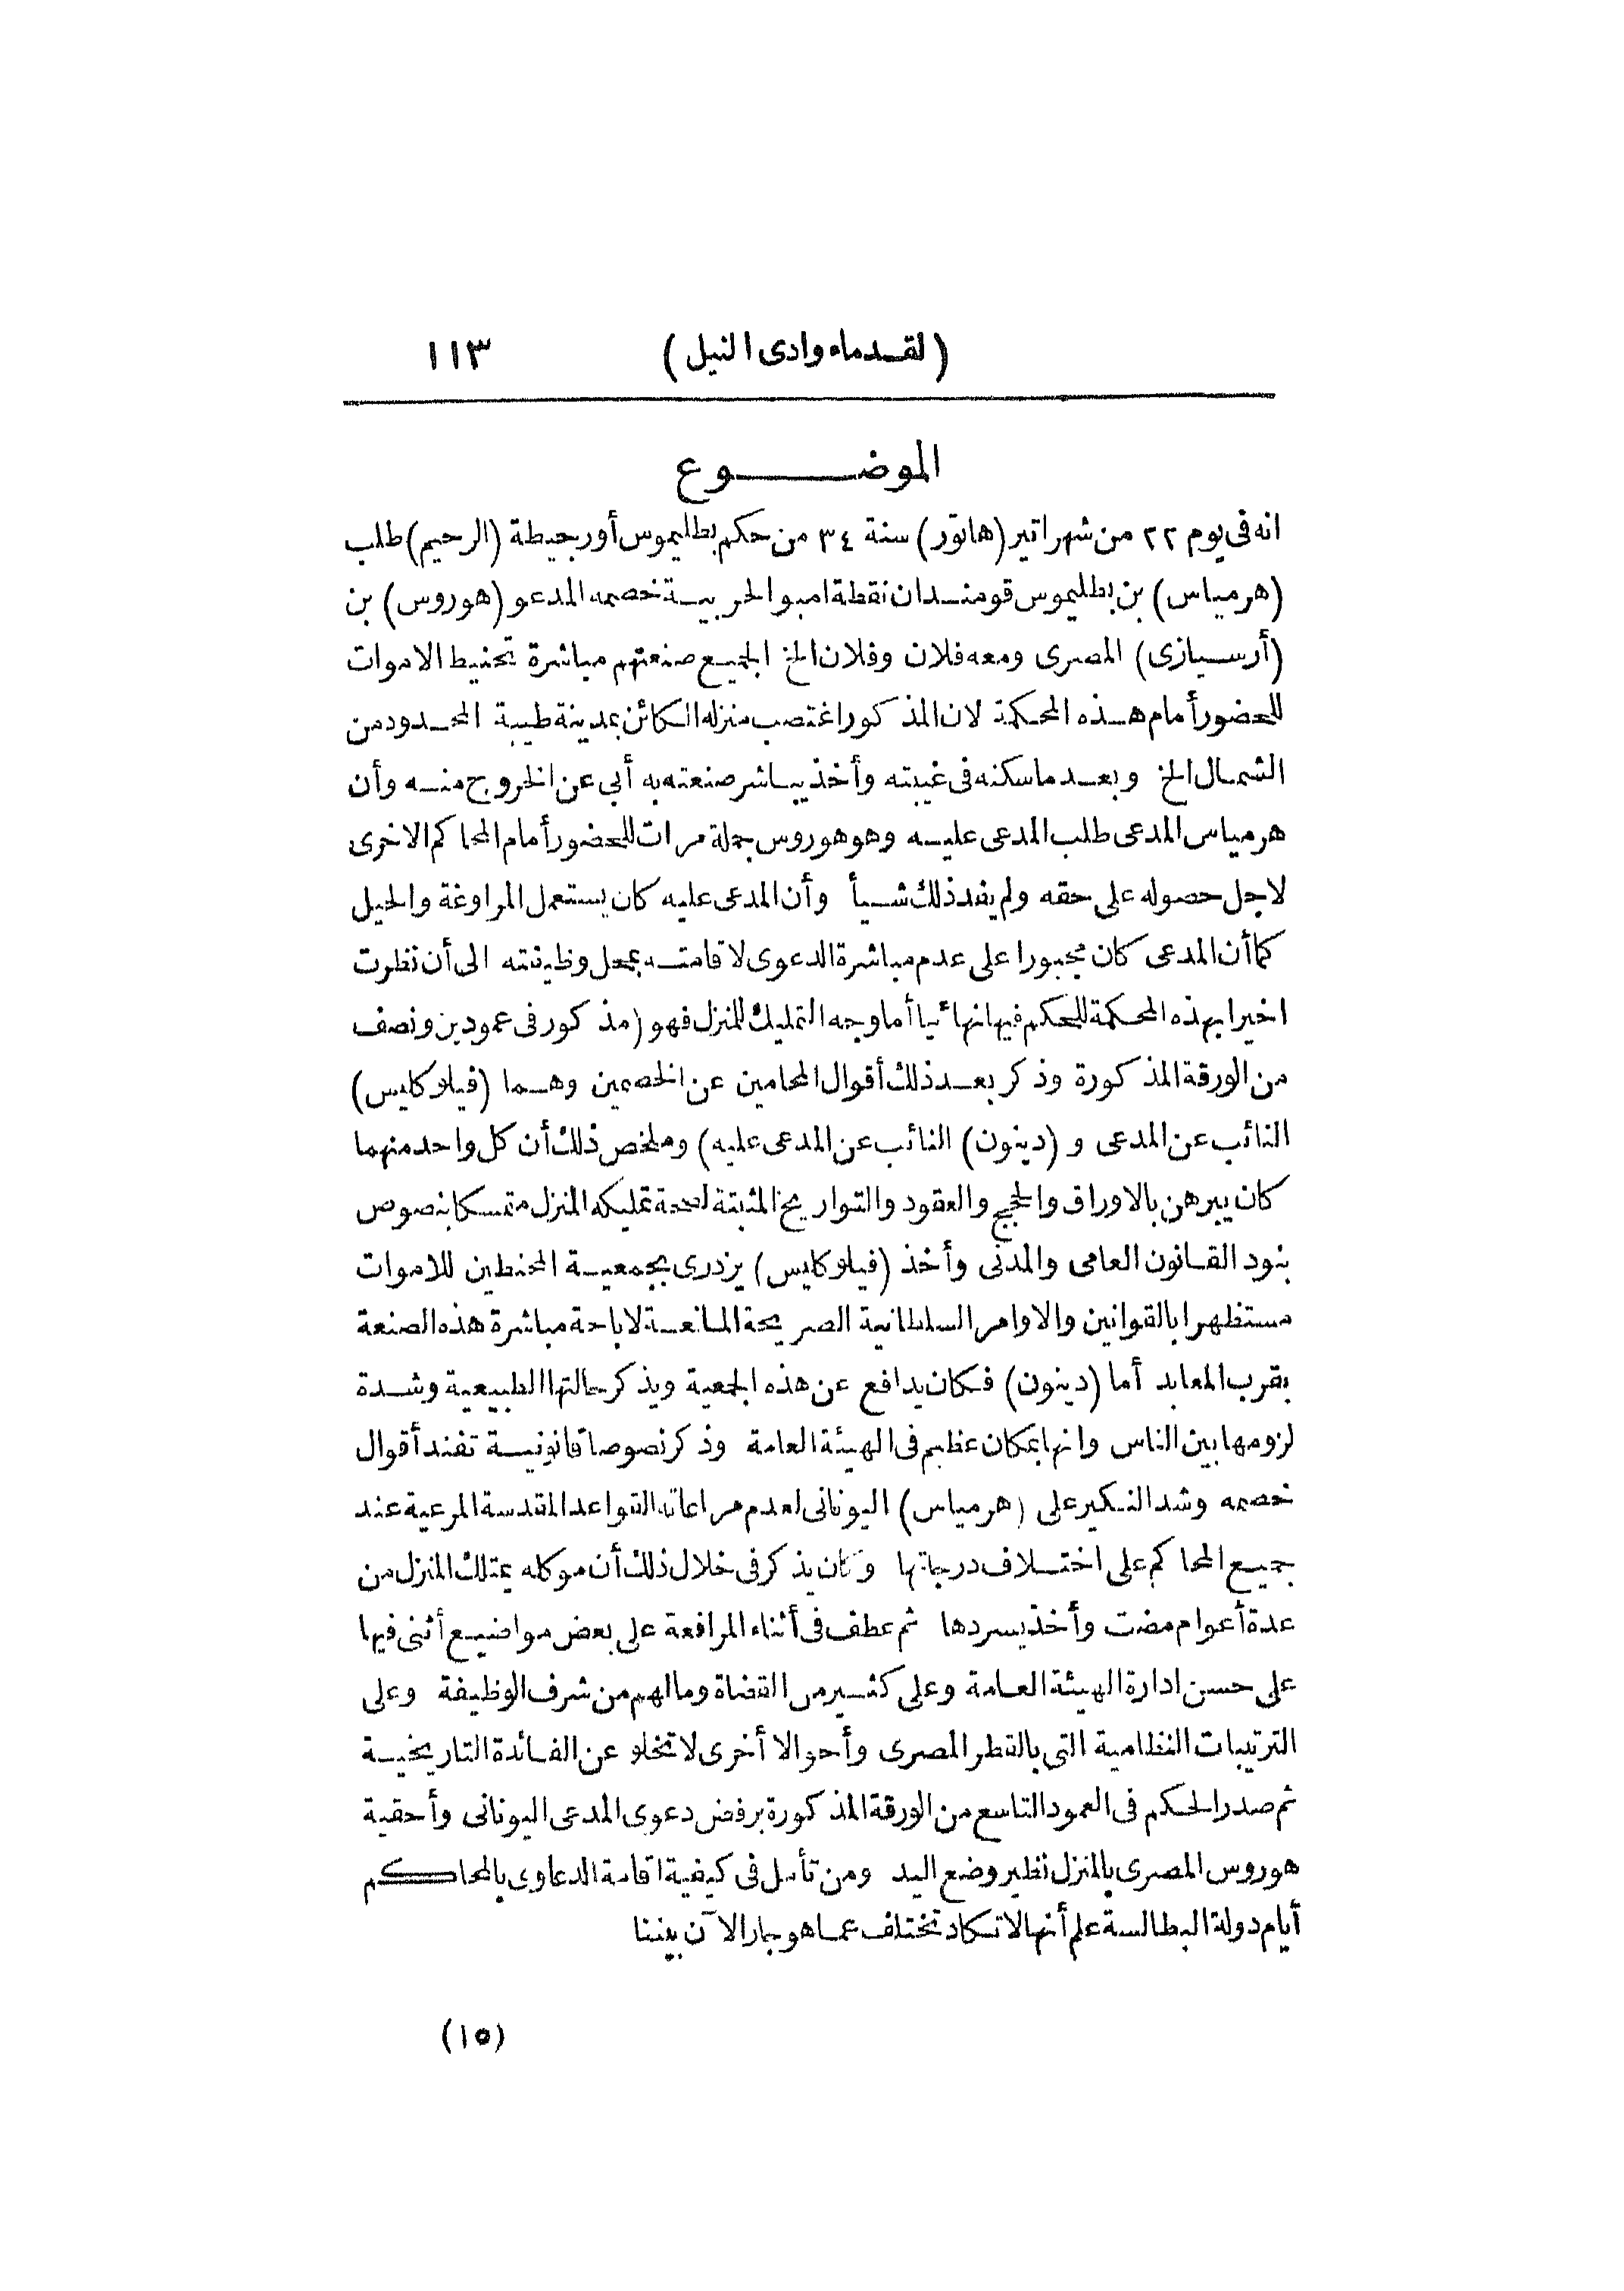 (لقدماء وادى النيل) ١١٣
الموضوع
انه فى يوم ٢٢ من شهر اتير (هاتور) سنة ٣٤ من حكم بطليموس أورجيطة (الرحيم) طلب
(هرمياس) بن بطليموس قومندان نقطة امبو الحربية خصمه المدعو (هوروس) بن
(أرسيازى) المصرى ومعه فلان وفلان الخ الجميع صنعتهم مباشرة تحنيط الاموات
للحضور أمام هذه المحكمة لان المذكور اغتصب منزله الكائن بمدينة طيبة المحدود من
الشمال الخ وبعد ما سكنه فى غيبته وأخذ يباشر صنعته به أبى عن الخروج منه وأن
هرمياس المدعى طلب المدعى عليه وهو هوروس جملة مرات للحضور أمام المحاكم الاخرى
لاجل حصوله على حقه ولم يفد ذلك شيأ وأن المدعى عليه كان يستعمل المراوغة والحيل
كما أن المدعى كان مجبورا على عدم مباشرة الدعوى لاقامته بمحل وظيفته الى أن نظرت
اخيرا بهذه المحكمة للحكم فيها نهائيا أما وجه التمليك للمنزل فهو (مذكور فى عمودين ونصف
من الورقة المذكورة وذكر بعد ذلك أقوال المحامين عن الخصمين وهما (فيلوكايس)
النائب عن المدعى و (دينون) النائب عن المدعى عليه) وملخص ذلك أن كل واحد منهما
كان يبرهن بالاوراق والحجج والعقود والتواريخ المثبتة لصحة تمليكه المنزل متمسكا بنصوص
بنود القانون العامى والمدنى وأخذ (فيلوكايس) يزدرى بجمعية المحنطين للاموات
مستظهرا بالقوانين والاوامر السلطانية الصريحة المانعة لاباحة مباشرة هذه الصنعة
بقرب المعابد أما (دينون) فكان يدافع عن هذه الجمعية ويذكر حالتها الطبيعية وشدة
لزومها بين الناس وانها بمكان عظيم فى الهيئة العامة وذكر نصوصا قانونية تفند أقوال
خصمه وشد النكير على (هرمياس) اليونانى لعدم مراعاته القواعد المقدسة المرعية عند
جميع المحاكم على اختلاف درجاتها وكان يذكر فى خلال ذلك أن موكله يمتلك المنزل من
عدة أعوام مضت وأخذ يسردها ثم عطف فى أثناء المرافعة على بعض مواضيع أثنى فيها
على حسن ادارة الهيئة العامة وعلى كثير من القضاة وما لهم من شرف الوظيفة وعلى
الترتيبات النظامية التى بالقطر المصرى وأحوالا أخرى لا تخلو عن الفائدة التاريخية
ثم صدر الحكم فى العمود التاسع من الورقة المذكورة برفض دعوى المدعى اليونانى وأحقية
هوروس المصرى بالمنزل نظير وضع اليد ومن تأمل فى كيفية اقامة الدعاوى بالمحاكم
أيام دولة البطالسة علم أنها لا تكاد تختلف عما هو جار الآن بيننا
(١٥)